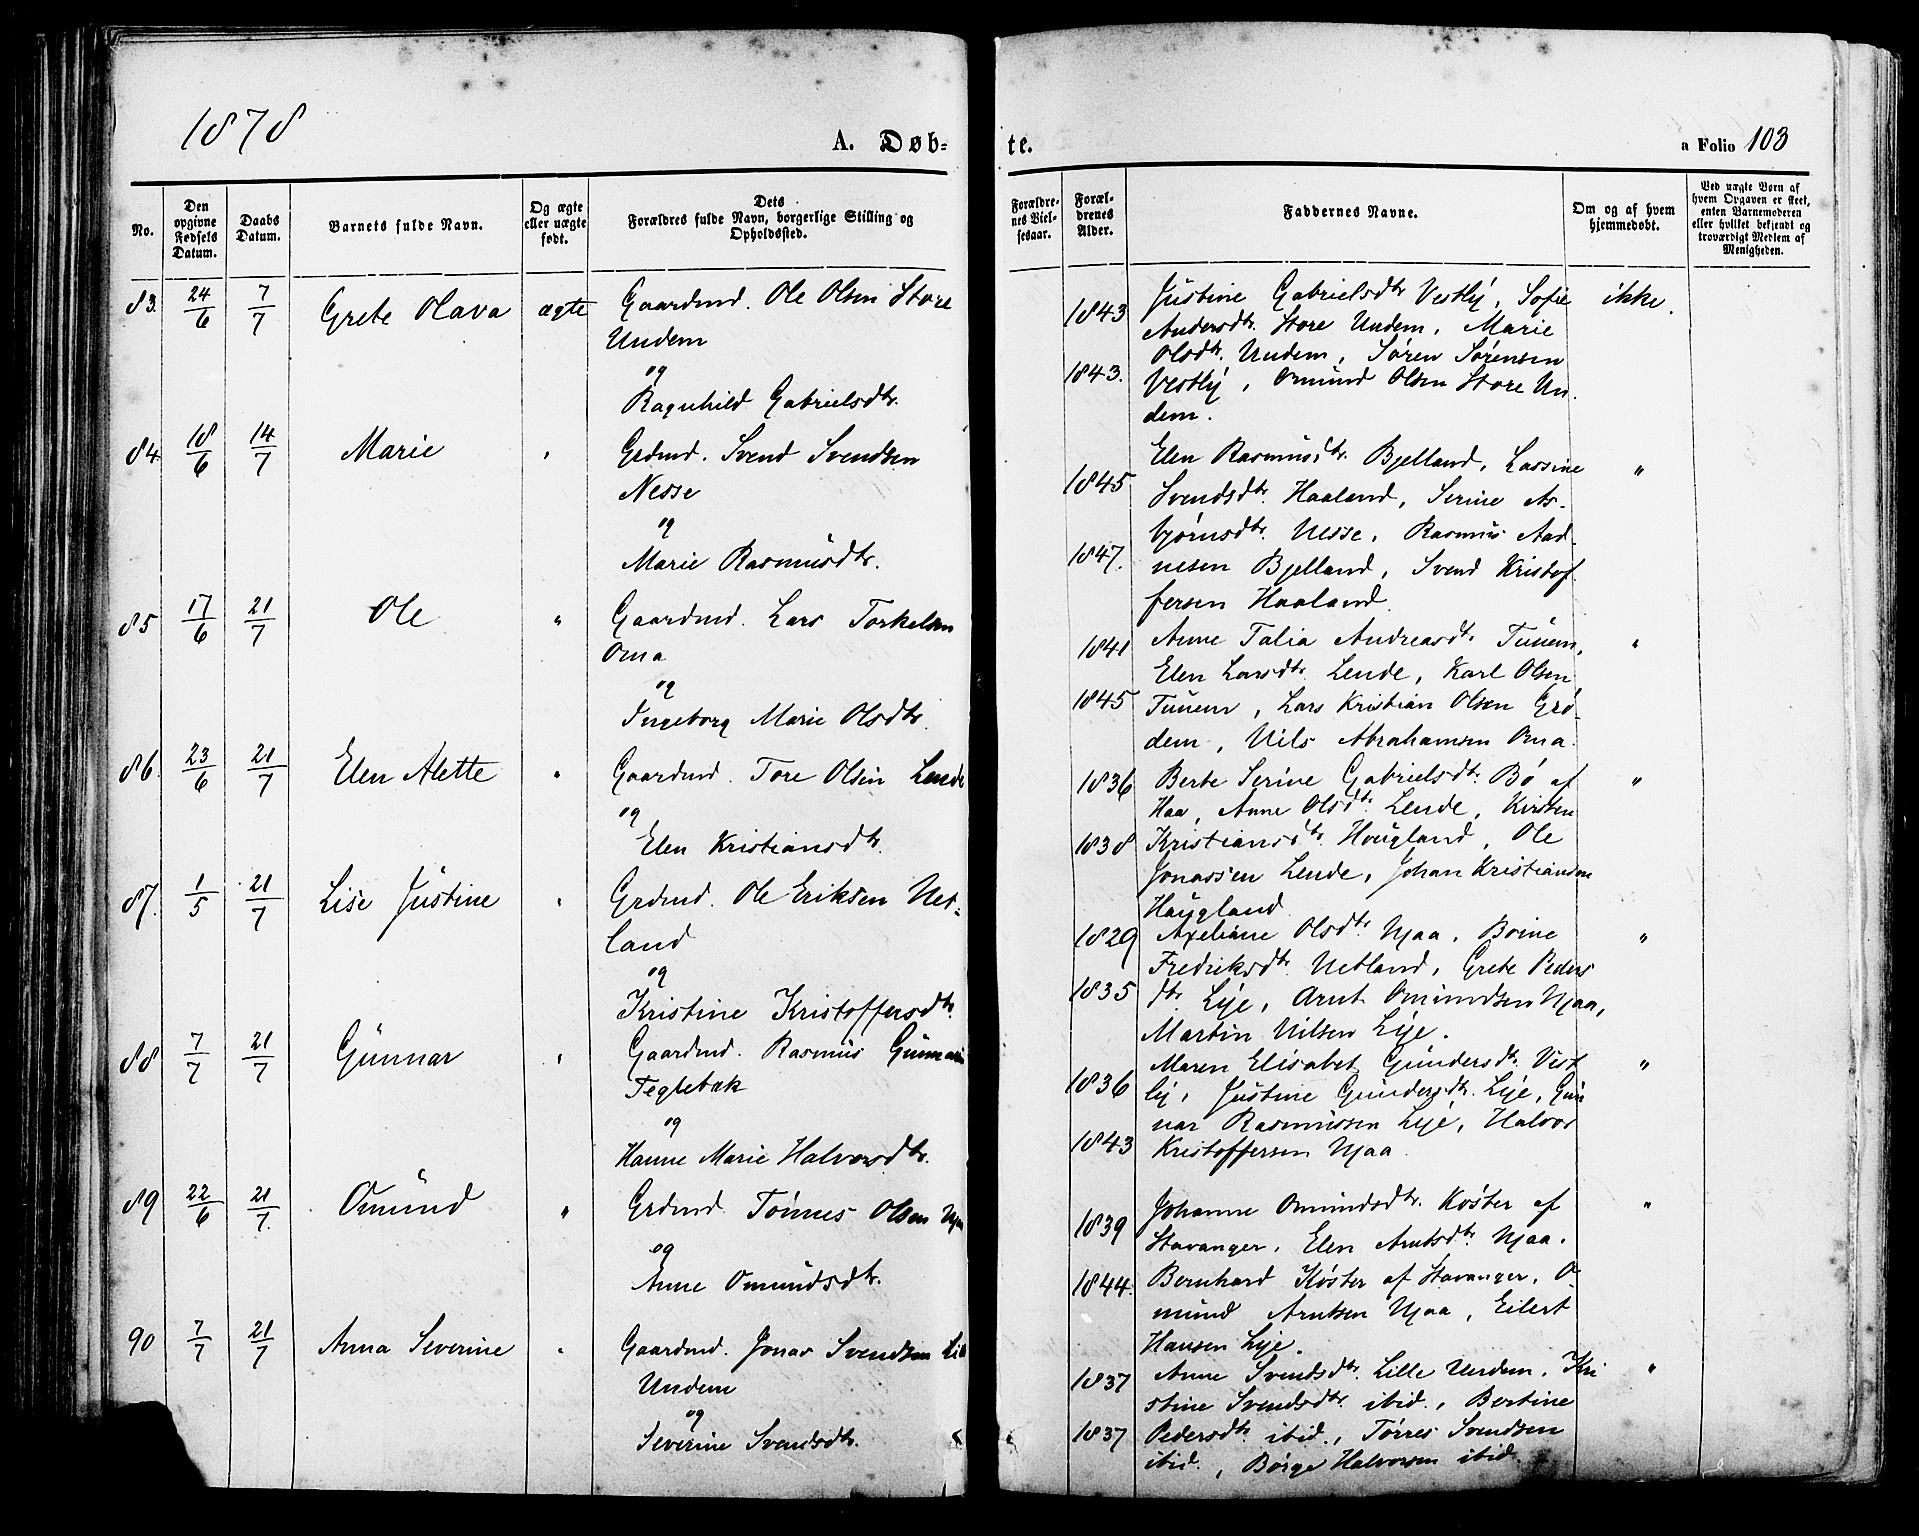 1878
A. Døb-
No.
Den opgivne Fødsels Datum.
Daabs Datum.
Barnets fulde Navn.
Og ægte eller uægte født.
Dets Forældres fulde Navn, borgerlige Stilling og Opholdssted.
83. 24/6 7/7 Grete Olava ægte Gaardmd. Ole Olsen Store
Undem
og
Ragnhild Gabrielsdtr.
84. 18/6 14/7 Marie Grdmd. Svend Svendsen
Nesse
og
Marie Rasmusdtr.
85 17/6 21/7 Ole " Gaardmd. Lars Torkelsen
Oma
og
Ingeborg Marie Olsdtr.
86. 23/6 21/7 Elen Alette " Gaardmd. Tore Olsen Lende
og
Elen Kristiansdtr.
87. 1/5 21/7 Lise Justine " Grdmd. Ole Eriksen Net-
land
og
Kristine Kristoffersdtr.
88 7/7 21/7 Gunnar " Gaardmd. Rasmus
Teglebæk
og
Hanne Marie Halvorsdtr.
89 22/6 21/7. Omund " Grdmd. Tønnes Olsen
og
Anne Omundsdtr.
90 7/7 21/7 Anna Severine " Gaardmd. Jonas Svendsen
Undem
og
Severine Svendsdtr.
te.
a Folio 103
Forældrenes Vielsesaar.
Forældrenes Alder.
Faddernes Navne.
Om og af hvem hjemmedøbt.
Ved uægte Børn af hvem Opgaven er skeet, enten Barnemoderen eller hvilket bekjendt og troværdigt Medlem af Menigheden.
1843 Justine Gabrielsdtr Vestly, Sofie ikke.
Andersdtr. Store Undem, Marie
Olsdtr. Undem, Søren Sørensen
1843. Vestly, Omund Olsen Store Un
dem.
Elen Rasmusdtr. Bjelland, Lassine "
1845 Svendsdtr. Haaland, Serine As-
bjørnsdtr. Nesse, Rasmus Aad-
1847. nesen Bjelland, Svend Kristof
fersen Haaland.
1841 Anne Talia Andreasdtr. Tunem, "
Elen Larsdtr. Lende, Karl Olsen
1845 Tunem, Lars Kristian Olsen Grø-
dem, Nils Abrahamsen Oma.
1836 Berte Serine Gabrielsdtr. Bø af "
Haa, Anne Olsdtr. Lende, Kirsten
1838 Kristiansdtr. Hougland, Ole
Jonassen Lende, Johan Kristiansen
Haugland
1829 Axeliane Olsdtr. Njaa, Boine "
Fredriksdtr. Netland, Grete Peders
1835 dtr. Lye, Arnt Omundsen Njaa,
Martin Nilsen Lye.
Maren Elisabet Gundersdtr. Vest "
1836 ly, Justine Gundersdtr. Lye, Gun
nar Rasmussen Lye, Halvor
1843 Kristoffersen Njaa.
Johanne Omundsdtr. Køster af "
1839 Stavanger, Elen Arntsdtr. Njaa.
1844. Bernhard Køster af Stavanger, O-
mund Arntsen Njaa, Eilert
Hansen Lye.
1837 Anne Svendsdtr. Lille Undem, Kri "
stine Svendsdtr. ibid., Bertine
1837 Pedersdtr. ibid., Tørres Svendsen
ibid., Børge Halvorsen ibid.